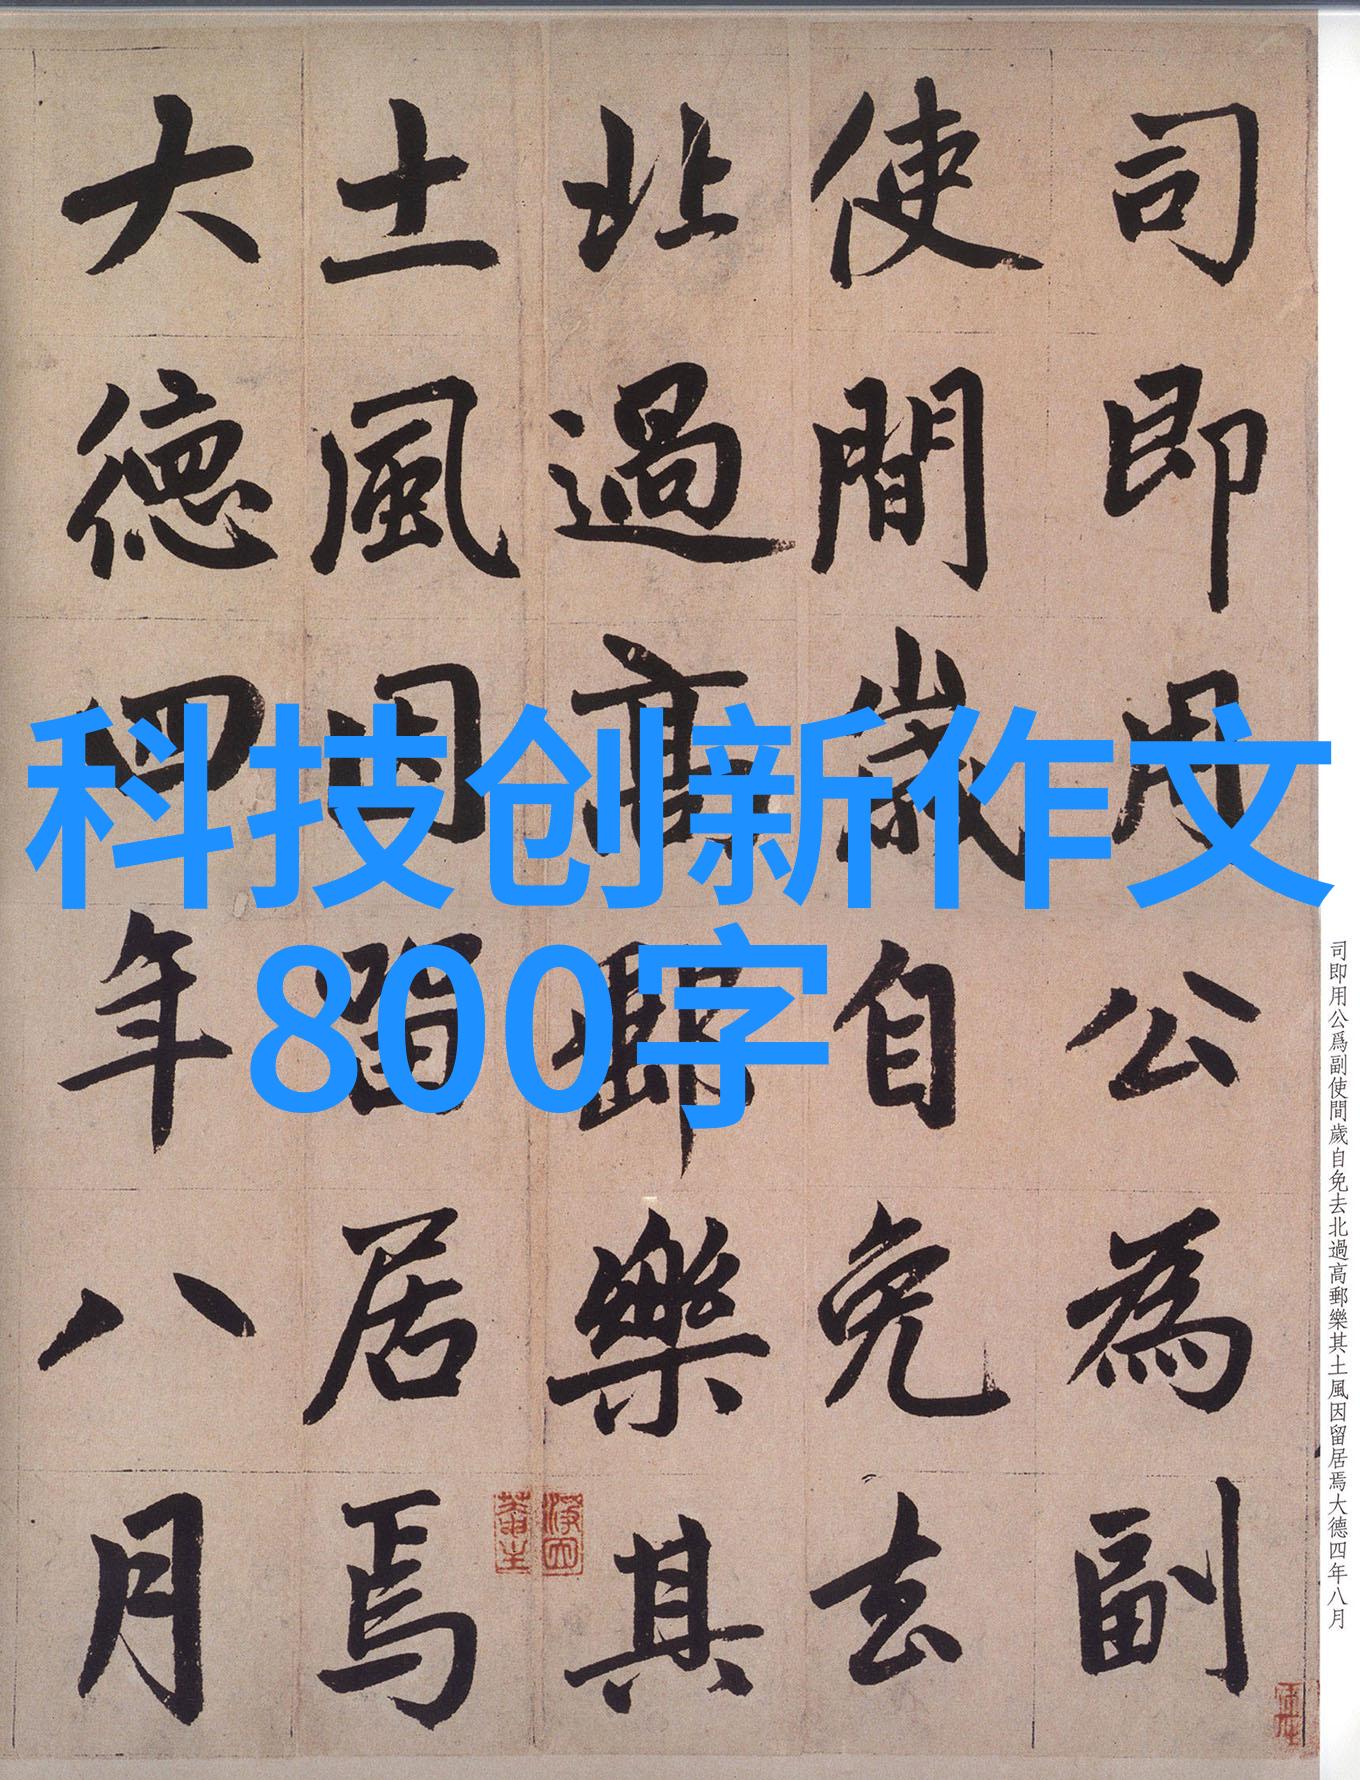 司即用公為副
使間歲自免去
北過高郵樂其
土風因留居焉
大德四年八月
科技创新作文
800字
司即用公爲副使間歲自免去北過高郵樂其土風因留居焉大德四年八月